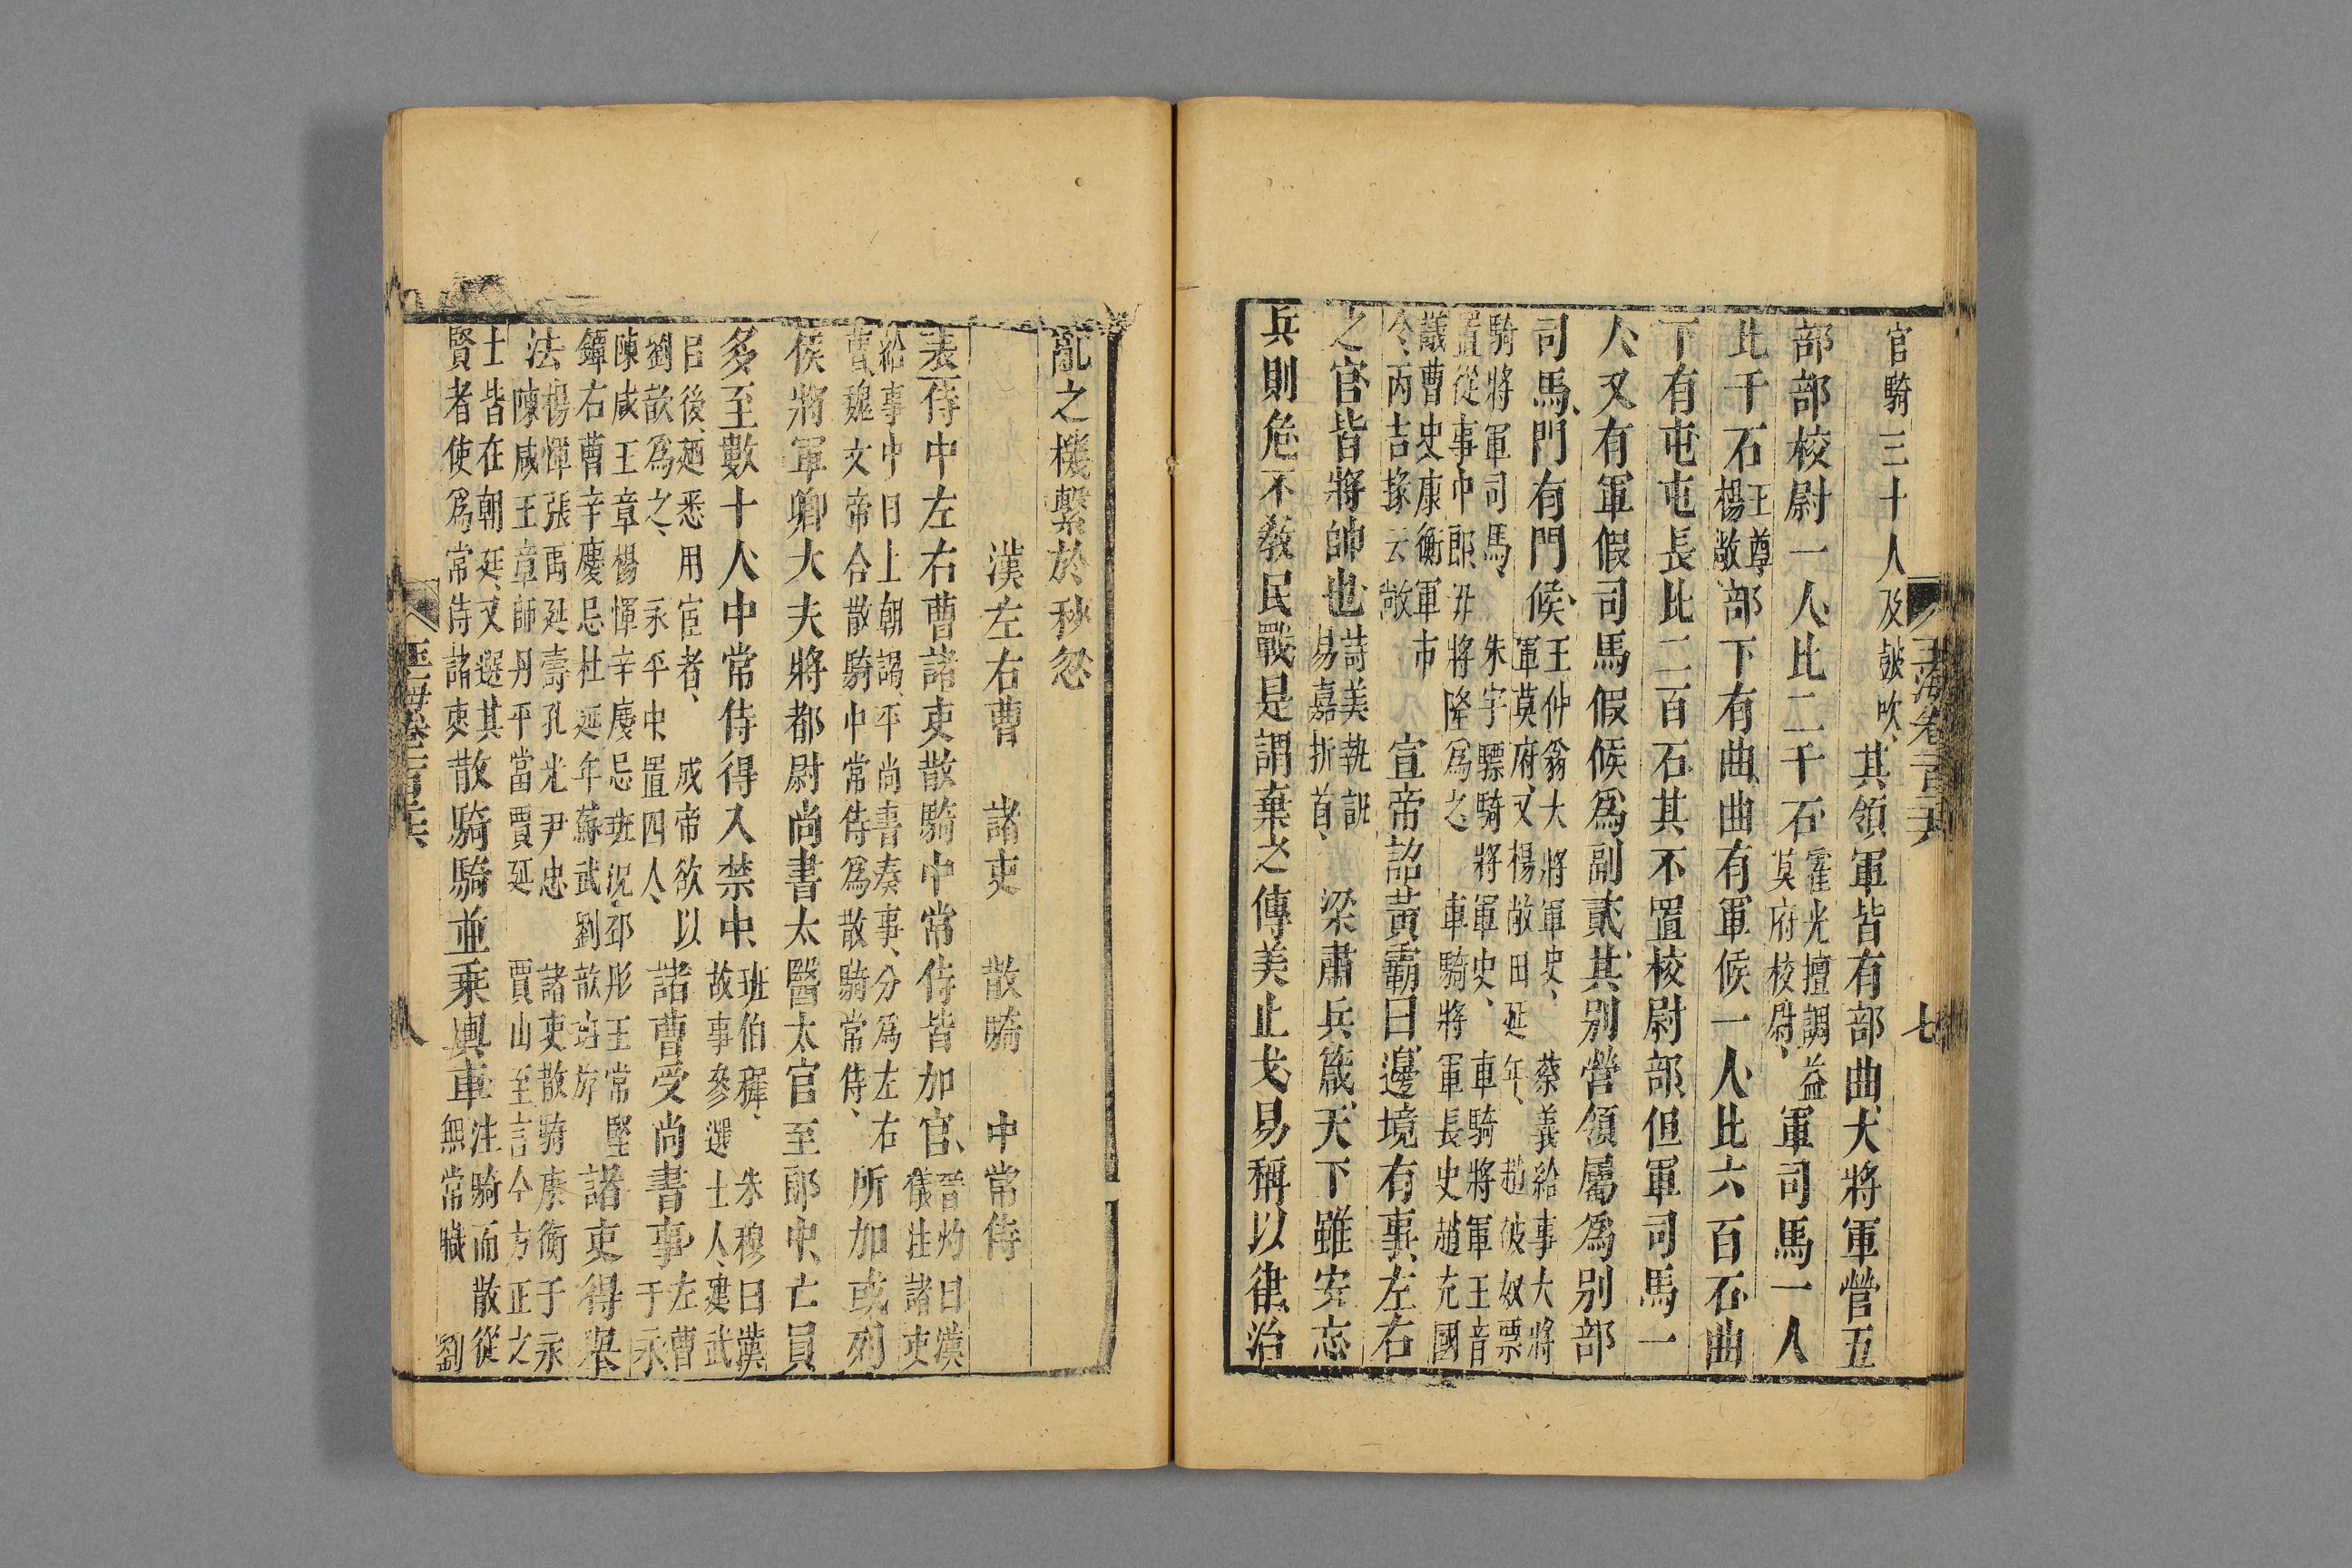 玉海卷一百三十六 七
官騎三十人及鼓吹、其領軍皆有部曲、大將軍營五
部部校尉一人、比二千石霍光擅調益莫府校尉、軍司馬一人
比千石王尊楊敞部下有曲、曲有軍候一人、比六百石、曲
下有屯屯長比二百石其不置校尉部、但軍司馬一
人、又有軍假司馬假候爲副貳、其別營領屬爲別部
司馬、門有門候、王仲翁大將軍史、蔡義給事大將軍莫府、又楊敞田延年、趙彼奴票
騎將軍司馬、朱宇驃騎將軍史、車騎將軍王音置從事中郎、毋將隆爲之、車騎將軍長史趙充國
議曹史康衡軍市令、丙吉掾云敞宣帝詔黃霸曰邊境有事、左右
之官皆將帥也詩美執訊易嘉折首、梁肅兵箴、天下雖安忘
兵則危不敎民戰是謂棄之傳美止戈易稱以律、治
亂之機繫於秒忽
漢左右曹 諸吏 散騎 中常侍
表侍中左右曹諸吏散騎中常侍皆加官、晉灼曰漢儀注諸吏
給事中日上朝謁、平尚書奏事、分爲左右曹、魏文帝合散騎中常侍爲散騎常侍、所加或列
侯將軍卿大夫將都尉尚書太醫太官至郎中、亡員
多至數十人中常侍得入禁中、班伯穉、朱穆曰漢故事參選士人、建武
已後、廼悉用宦者、成帝欲以劉歆爲之、永平中置四人、諸曹受尚書事、左曹于永
陳咸王章楊惲辛慶忌班況、邳彤王常堅鐔右曹辛慶忌杜延年蘇武劉歆班斿諸吏得舉
法楊惲張禹延壽孔光尹忠諸吏散騎康衡于永陳咸王章師丹平當賈延賈山至言今方正之
士皆在朝延、又選其賢者使爲常侍諸吏散騎騎並乘輿車注騎而散從無常職劉
玉海卷一百三十六 八